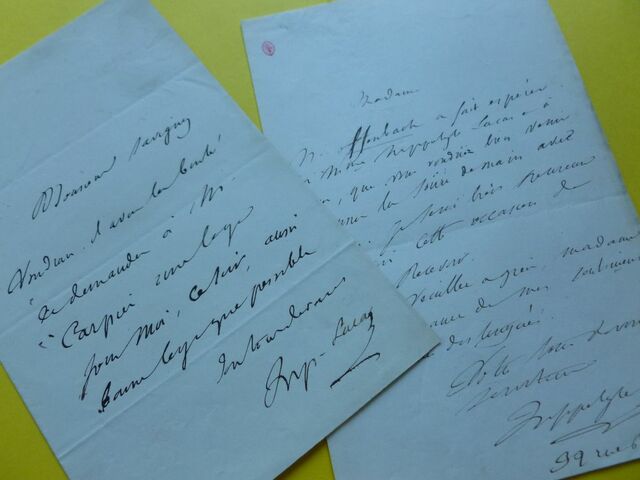 Monsieur Savigny
Voudra-t-il avoir la bonté
de demander à Mr
Carpier une loge
pour moi, ce soir, aussi
bonne loge que possible
Hip. Lucas
Madame
M. Offenbach a fait espérer
à Mme Hippolyte Lucas et à
, que vous voudriez bien venir
la soirée de mardi avec
je serai très heureux
cette occasion de
recevoir.
Veuillez agréer, madame
de mes sentiments
Votre tout dévoué
serviteur
Hippolyte
99 rue